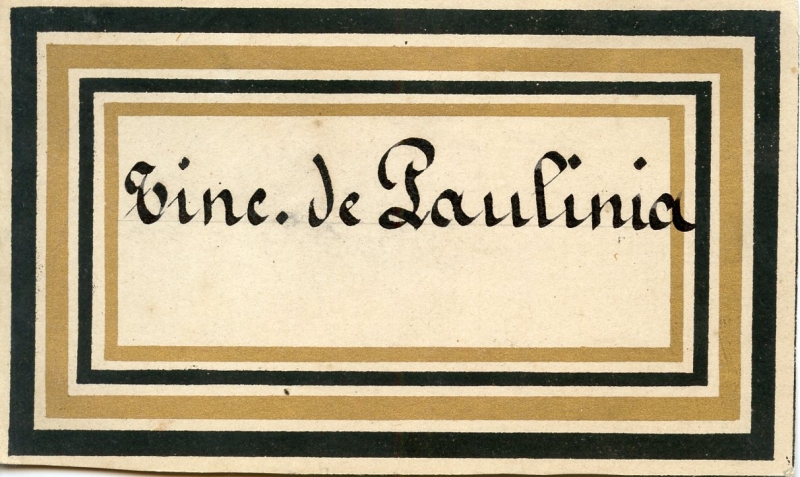 Tinc. de Paulinia